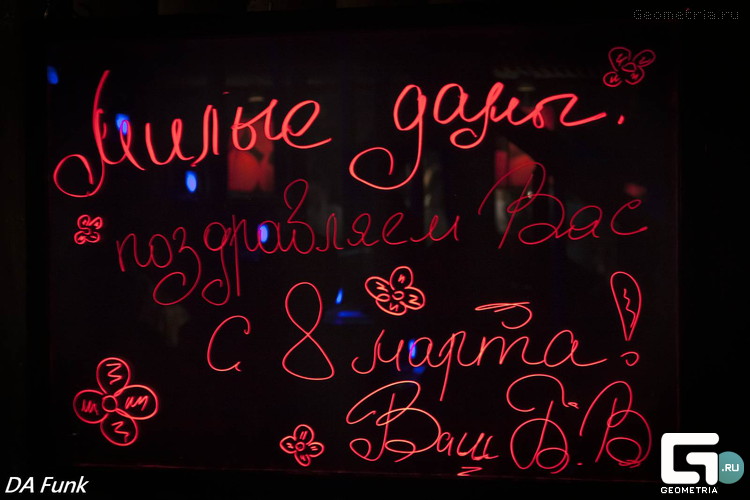 Geometria.ru
Милые дамы.
поздравляем Вас
с 8 марта!
Ваш Б.В
DA Funk
G .RU
GEOMETRIA